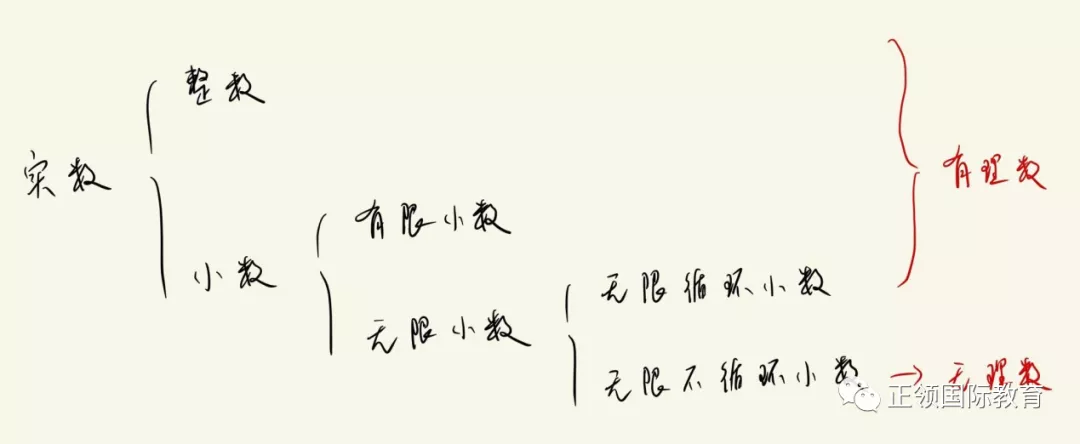 整数
实数
有理数
有限小数
小数
无限循环小数
无限小数
无限不循环小数 → 无理数
正领国际教育